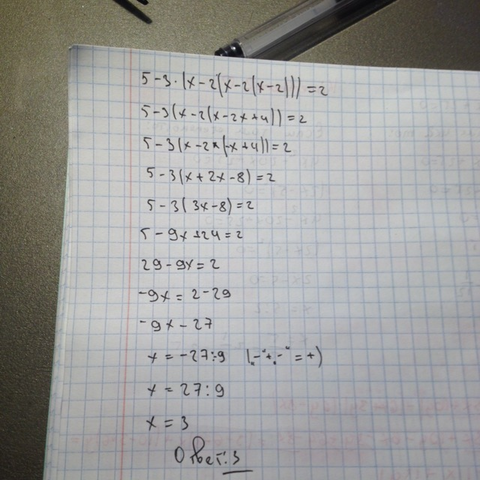 5-3·(x-2(x-2(x-2)))=2
5-3(x-2(x-2x+4))=2
5-3(x-2*(-x+4))=2
5-3(x+2x-8)=2
5-3(3x-8)=2
5-9x+24=2
29-9x=2
-9x=2-29
-9x-27
x=-27:9 („-“+„-“=+)
x=27:9
x=3
Ответ:3